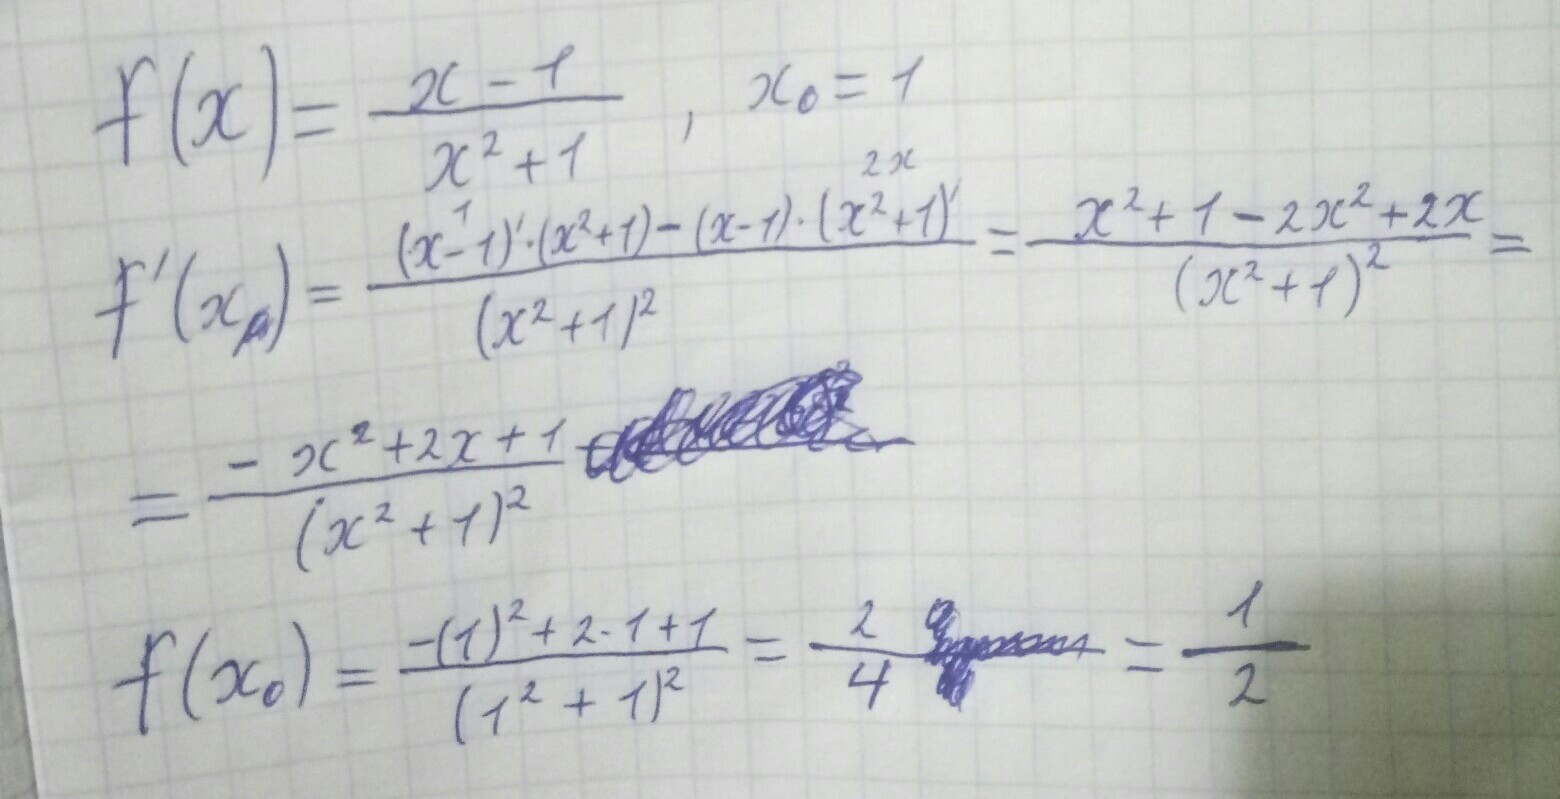 f(x) = (x - 1)/(x² + 1) , x₀ = 1
f'(x) = ((x-1)'·(x²+1) - (x-1)·(x²+1)')/(x²+1)² = (x² + 1 - 2x² + 2x)/(x² + 1)² =
1 2x
= (- x² + 2x + 1)/(x² + 1)²
f(x₀) = (-(1)² + 2·1 + 1)/(1² + 1)² = 2/4 = 1/2